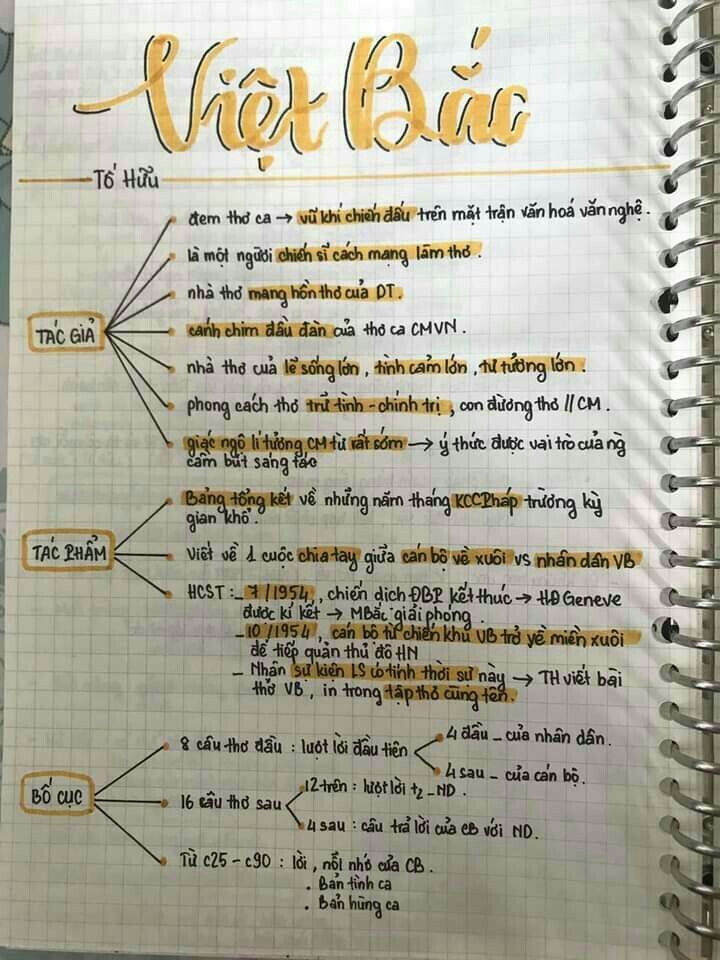 Việt Bắc
Tố Hữu
TÁC GIẢ
đem thơ ca → vũ khí chiến đấu trên mặt trận văn hoá văn nghệ.
là một người chiến sĩ cách mạng làm thơ.
nhà thơ mang hồn thơ của DT.
cánh chim đầu đàn của thơ ca CMVN.
nhà thơ của lẽ sống lớn, tình cảm lớn, tư tưởng lớn.
phong cách thơ trữ tình - chính trị, con đường thơ // CM.
giác ngộ lí tưởng CM từ rất sớm → ý thức được vai trò của ng̀
cầm bút sáng tác
TÁC PHẨM
Bảng tổng kết về những năm tháng KCCPháp trường kỳ
gian khổ.
Viết về 1 cuộc chia tay giữa cán bộ về xuôi vs nhân dân VB
HCST: _ 7/1954, chiến dịch ĐBP kết thúc → HĐ Geneve
được kí kết → MBắc giải phóng.
_ 10/1954, cán bộ từ chiến khu VB trở về miền xuôi
để tiếp quản thủ đô HN
_ Nhân sự kiện LS có tính thời sự này → TH viết bài
thơ VB, in trong tập thơ cùng tên.
BỐ CỤC
8 câu thơ đầu: lượt lời đầu tiên
4 đầu _ của nhân dân.
4 sau _ của cán bộ.
16 câu thơ sau
12 trên: lượt lời t2 _ ND.
4 sau: câu trả lời của CB với ND.
Từ c25 - c90: lời, nỗi nhớ của CB.
. Bản tình ca
. Bản hùng ca